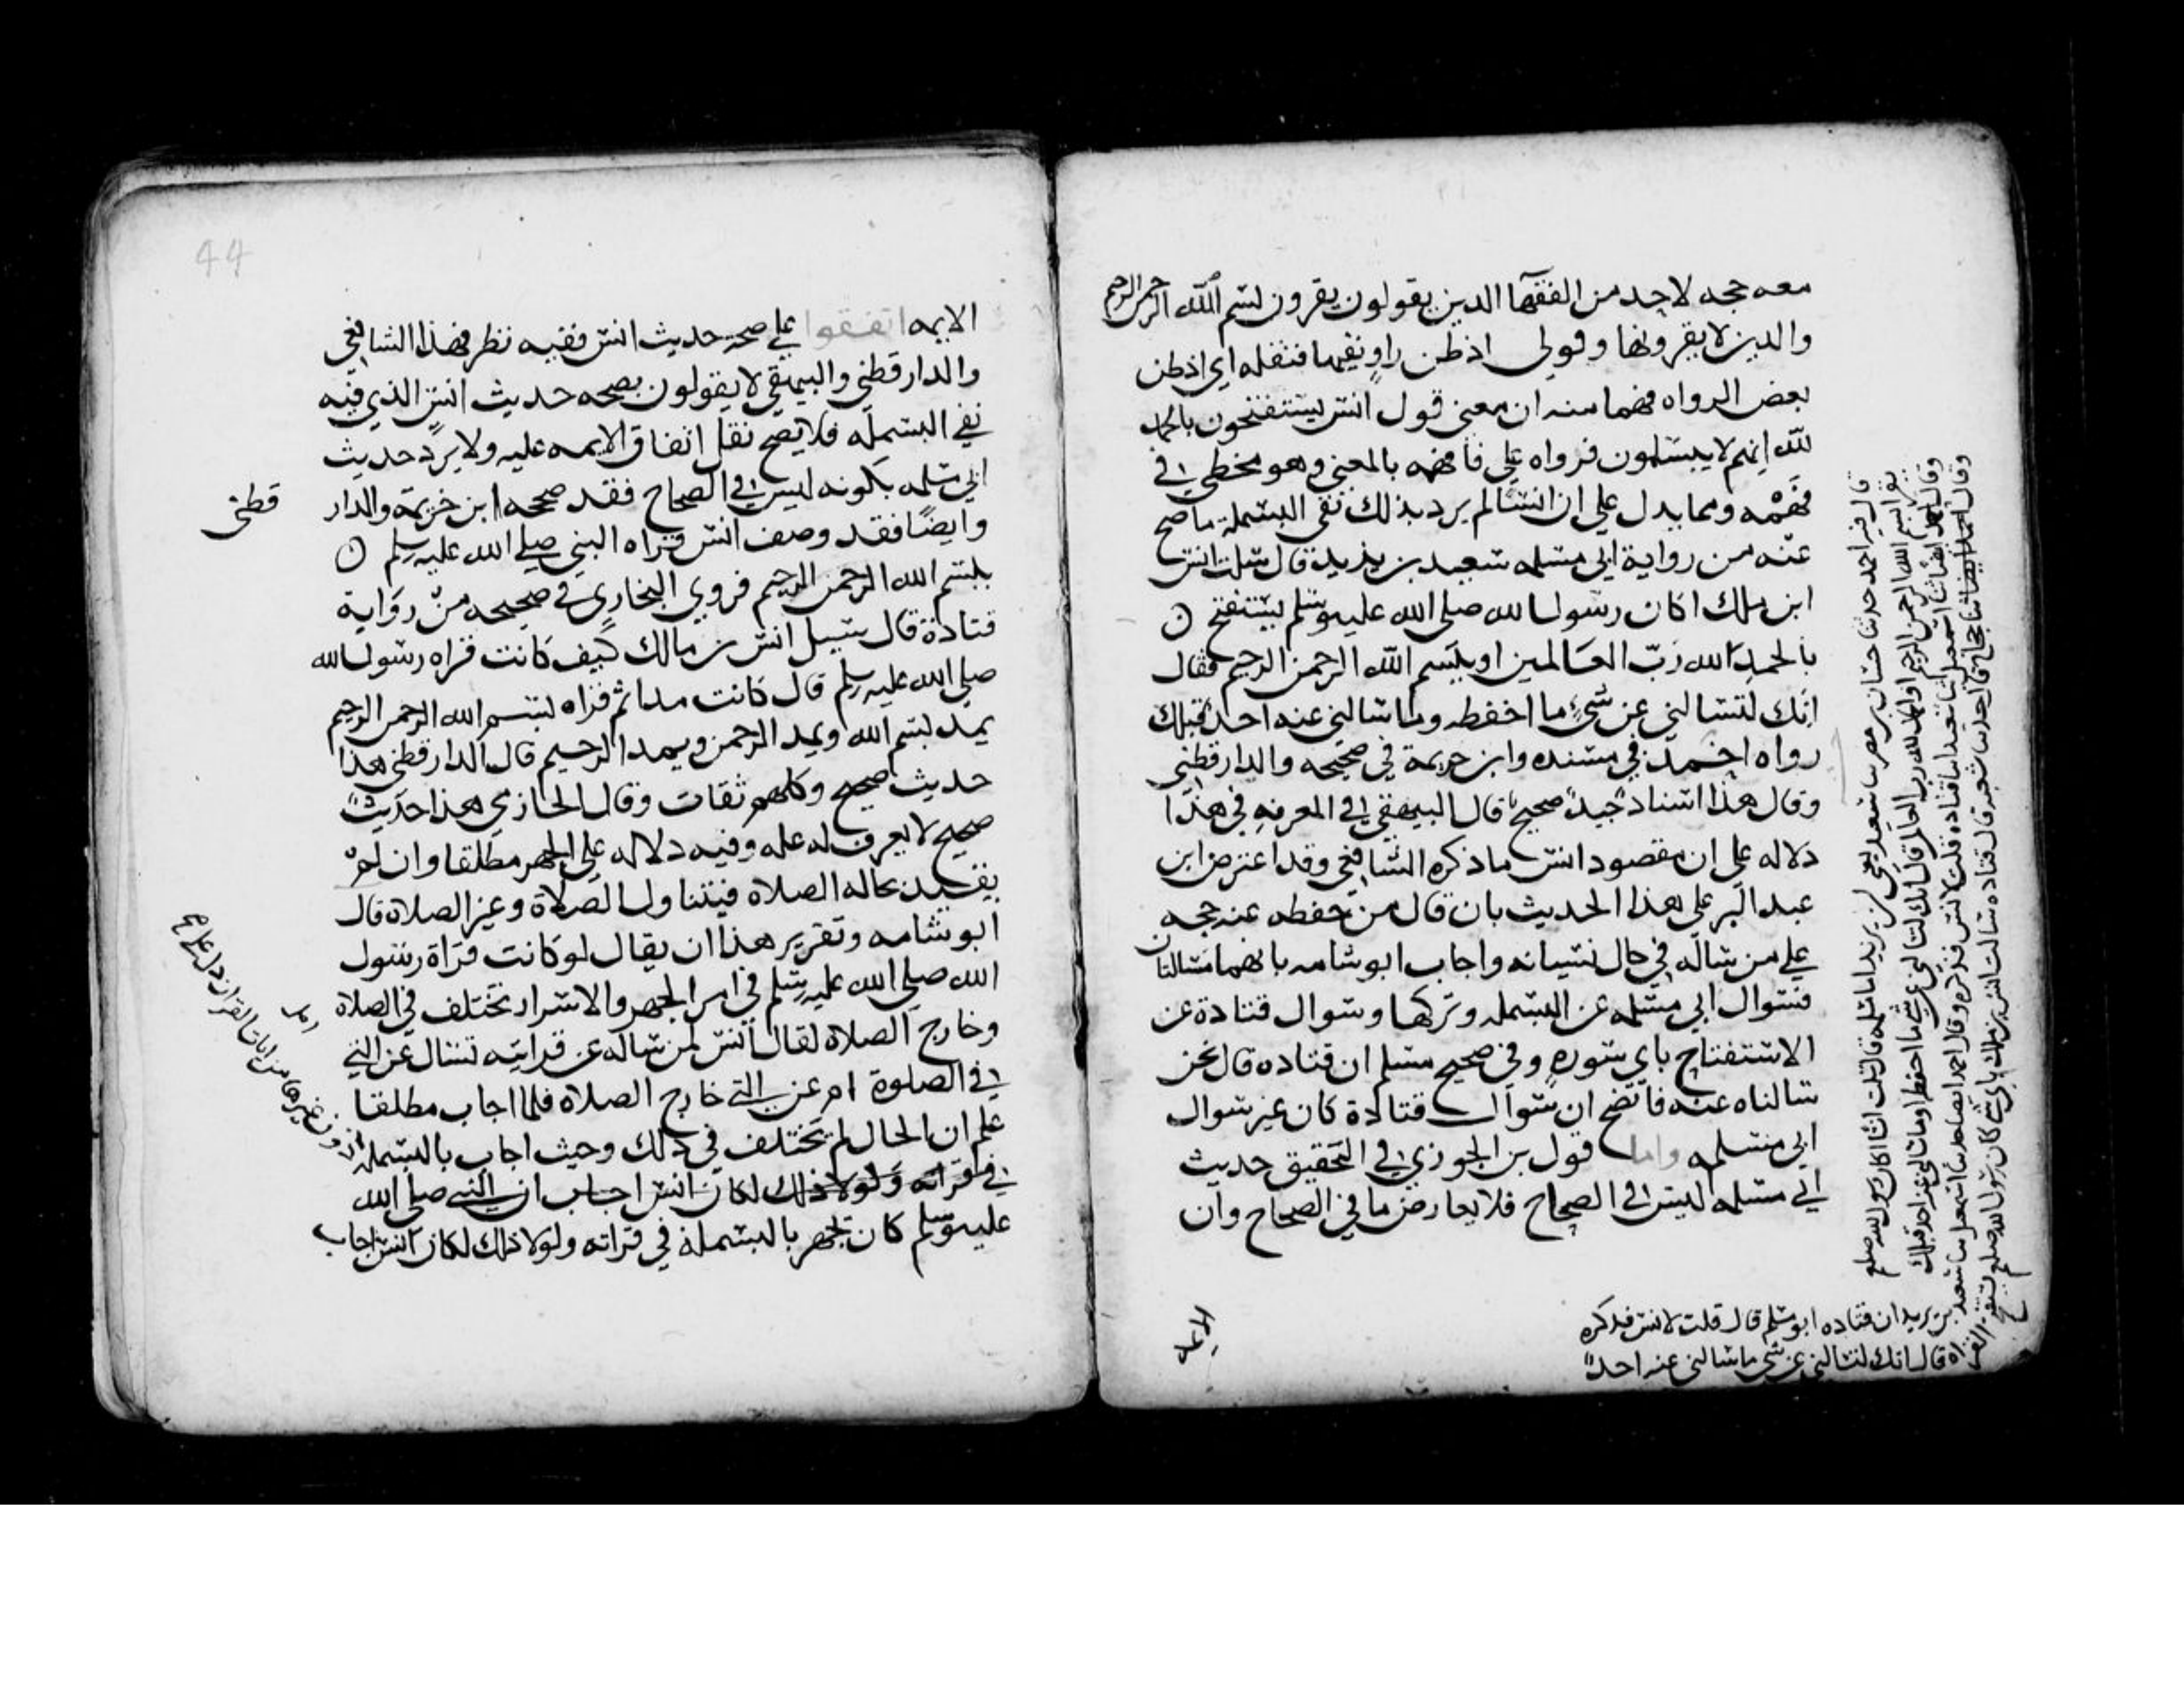 معه حجه لاحد من الفقها الدين يقولون يقرون بسم الله الرحمن الرحيم
والدين لا يقرونها وقولي اذ ظن راو نفيها فنقله اي اذ ظن
بعض الرواه فهما منه ان معنى قول انس يستفتحون بالحمد
لله انهم لا يبسملون فرواه على فافهمه بالمعنى وهو مخطي في
فهمه ومما يدل على ان انسا لم يرد بذلك نفى البسملة ما صح
عنه من رواية ابي مسلمه سعيد بن يزيد قال سلت انس
ابن ملك اكان رسول الله صلى الله عليه وسلم يستفتح
بالحمد لله رب العالمين او ببسم الله الرحمن الرحيم فقال
انك لتسالني عن شيء ما احفظه وما سالني عنه احد قبلك
رواه احمد في مسنده وابن خزيمة في صحيحه والدارقطني
وقال هذا اسناد جيد صحيح قال البيهقي في المعرفه في هذا
دلاله على ان مقصود انس ما ذكره الشافعي وقد اعترض ابن
عبد البر على هذا الحديث بان قال من حفظه عنه حجه
على من ساله في حال نسيانه واجاب ابو شامه بانهما مسالتان
فسوال ابي مسلمه عن البسمله وتركها وسوال قتادة عن
الاستفتاح باي سوره وفي صحيح مسلم ان قتاده قال نحن
سالناه عنه فاتضح ان سوال قتادة كان غير سوال
ابي مسلمه واما قول بن الجوزي في التحقيق حديث
ابي مسلمه ليس في الصحاح فلا يعارض ما في الصحاح وان
قال فيه احمد حدثنا غسان بن مضر سا سعيد يعني بن يزيد ابا مسلمه قال سلت انسا اكان رسول الله صلعم
يقرا بسم الله الرحمن الرحيم او الحمد لله رب العالمين قال انك لتسالني عن شي ما احفظه او ما سالني عنه احد قبلك
بن يزيد ان قتاده ابو مسلم قال قلت لانس فذكره
قال انك لتسالني عن شي ما سالني عنه احد
الايمه
44
الايمه اتفقوا على صحة حديث انس ففيه نظر فهذا الشافعي
والدارقطني والبيهقي لا يقولون بصحه حديث انس الذي فيه
نفي البسمله فلا يصح نقل اتفاق الايمه عليه ولا يرد حديث
ابي مسلمه بكونه ليس في الصحاح فقد صححه ابن خزيمة والدار
قطنى
وايضا فقد وصف انس قراه النبي صلى الله عليه وسلم
ببسم الله الرحمن الرحيم فروي البخاري في صحيحه من رواية
قتادة قال سيل انس بن مالك كيف كانت قراه رسول الله
صلى الله عليه وسلم قال كانت مدا ثم قراه بسم الله الرحمن الرحيم
يمد بسم الله ويمد الرحمن ويمد الرحيم قال الدارقطني هذا
حديث صحيح وكلهم ثقات وقال الحازمي هذا حديث
صحيح لا يعرف له عله وفيه دلاله على الجهر مطلقا وان لم
يقيد بحاله الصلاه فيتناول الصلاة وغير الصلاة قال
ابو شامه وتقرير هذا ان يقال لو كانت قراة رسول
الله صلى الله عليه وسلم في امر الجهر والاسرار تختلف في الصلاة
وخارج الصلاة لقال انس لمن ساله عن قرايته تسال عن التي
في الصلوة ام عن التي خارج الصلاه فلما اجاب مطلقا
علم ان الحال لم تختلف في ذلك وحيث اجاب بالبسمله
دون غيرها من ايات القران دل على
في قراته ولولا ذلك لكان انس اجاب ان النبي صلى الله
عليه وسلم كان يجهر بالبسملة في قراته ولولا ذلك لكان انس اجاب